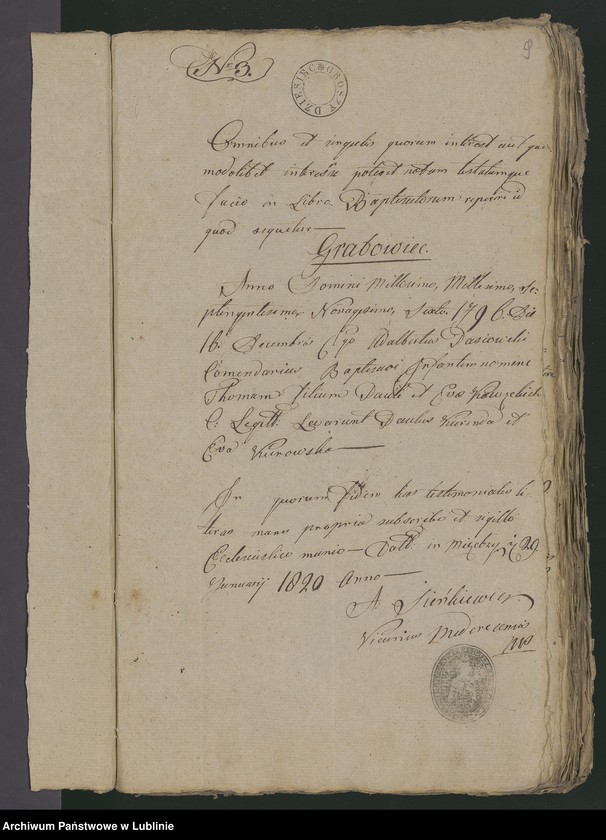 No 3.
9
DZIESIĘC GROSZY
Omnibus et singulis quorum interest aut quo
modolibet interesse poterit notum testatumque
facio in Libro Baptisatorum reperiri id
quod sequitur —
Grabowiec.
Anno Domini Millesimo, Millesimo, Se-
ptingentesimo Nonagesimo, Sexto. 1796. Die
16. Decembris Ego Adalbertus Dasiowski
Comendarius Baptisavi Infantem nomine
Thomam filium Pauli et Evæ
C: Legitt: Levarunt Paulus Kurenda et
Eva Kurowska —
In quorum fidem has testimoniales li-
teras manu propria subscribo et sigillo
Ecclesiastico munio — Datt: in 29
Januarij 1820 Anno —
A Sieńkiewicz
Vicarius
Archiwum Państwowe w Lublinie